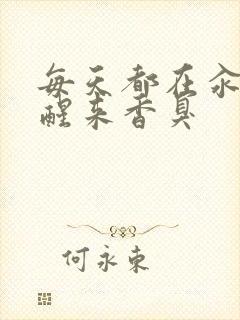 每天都在汆
醒来香臭
何永東